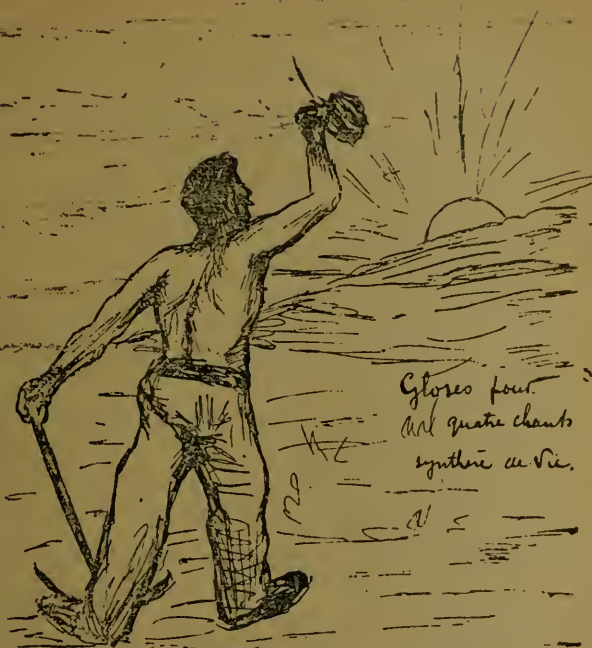 Gloses pour
quatre chants
synthèse de Vie.